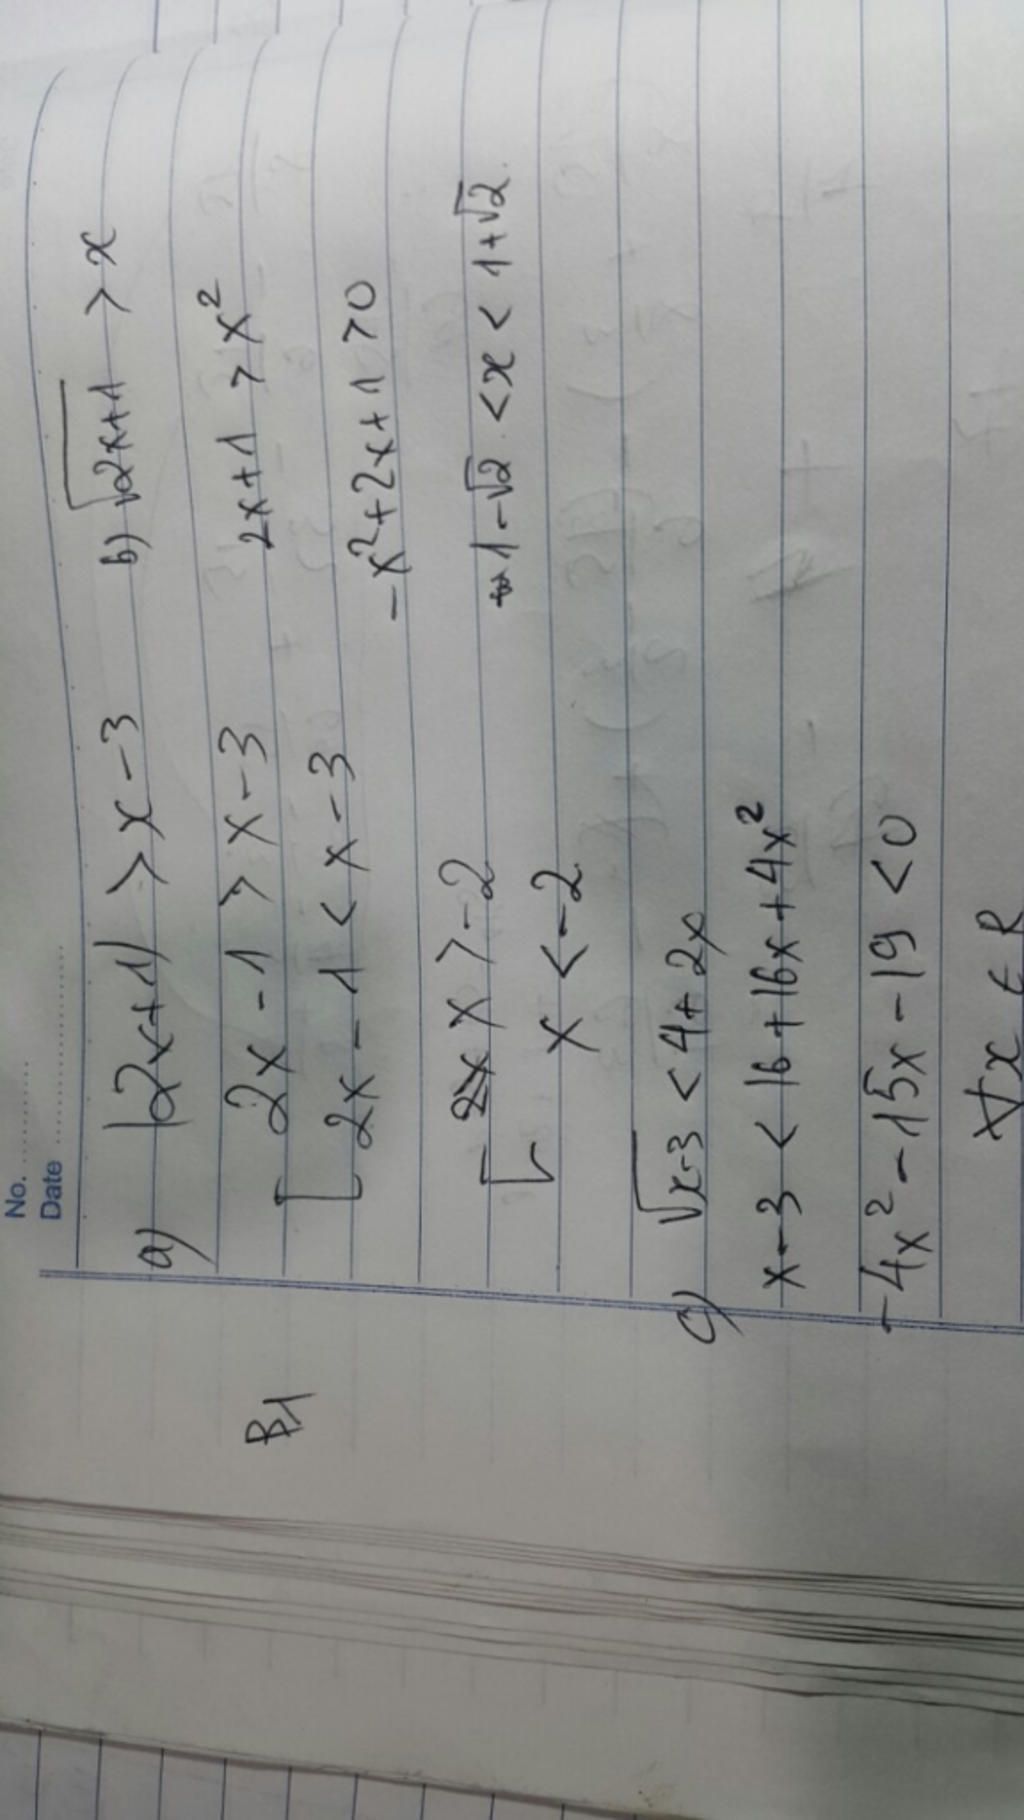 No. ............
Date ............
B1
a) |2x+1| > x-3
2x-1 > x-3
2x-1 < x-3
x > -2
x < -2
b) √2x+1 > x
2x+1 > x²
-x²+2x+1 > 0
1-√2 < x < 1+√2
c) √x-3 < 4+2x
x-3 < 16+16x+4x²
-4x²-15x-19 < 0
∀x ∈ R